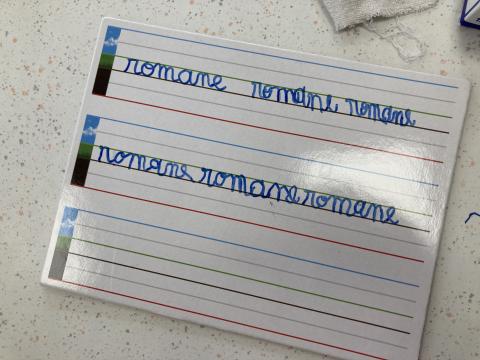 romane romane romane
romane romane romane